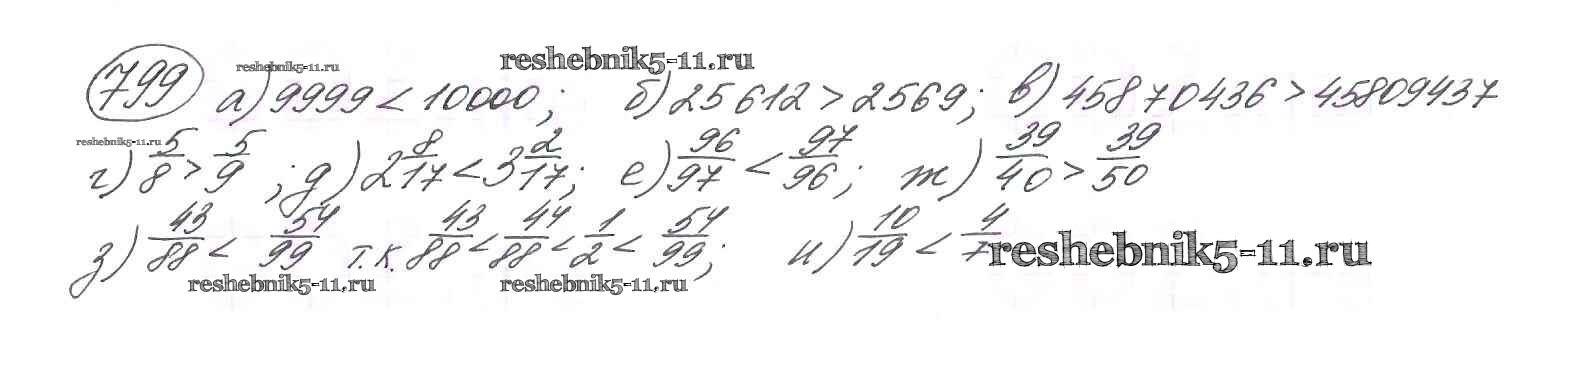 reshebnik5-11.ru
reshebnik5-11.ru
799 а) 9999 < 10000; б) 25 612 > 2569; в) 45870436 > 45809437
reshebnik5-11.ru
г) 5/8 > 5/9; д) 2 8/17 < 3 2/17; е) 96/97 < 97/96; ж) 39/40 > 39/50
з) 43/88 < 54/99 т.к. 43/88 < 44/88 < 1/2 < 54/99; и) 10/19 < 4/7
reshebnik5-11.ru
reshebnik5-11.ru
reshebnik5-11.ru